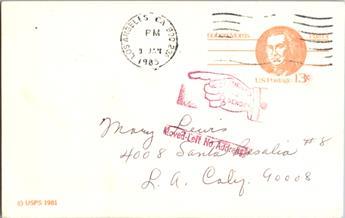 LOS ANGELES CA 900
PM
1983
Robert Morris
Patriot
US Postage 13¢
SENDER
Moved-Left No Address
Mary Lewis
4008 Santa Rosalia #8
L. A. Caly. 90008
© USPS 1981